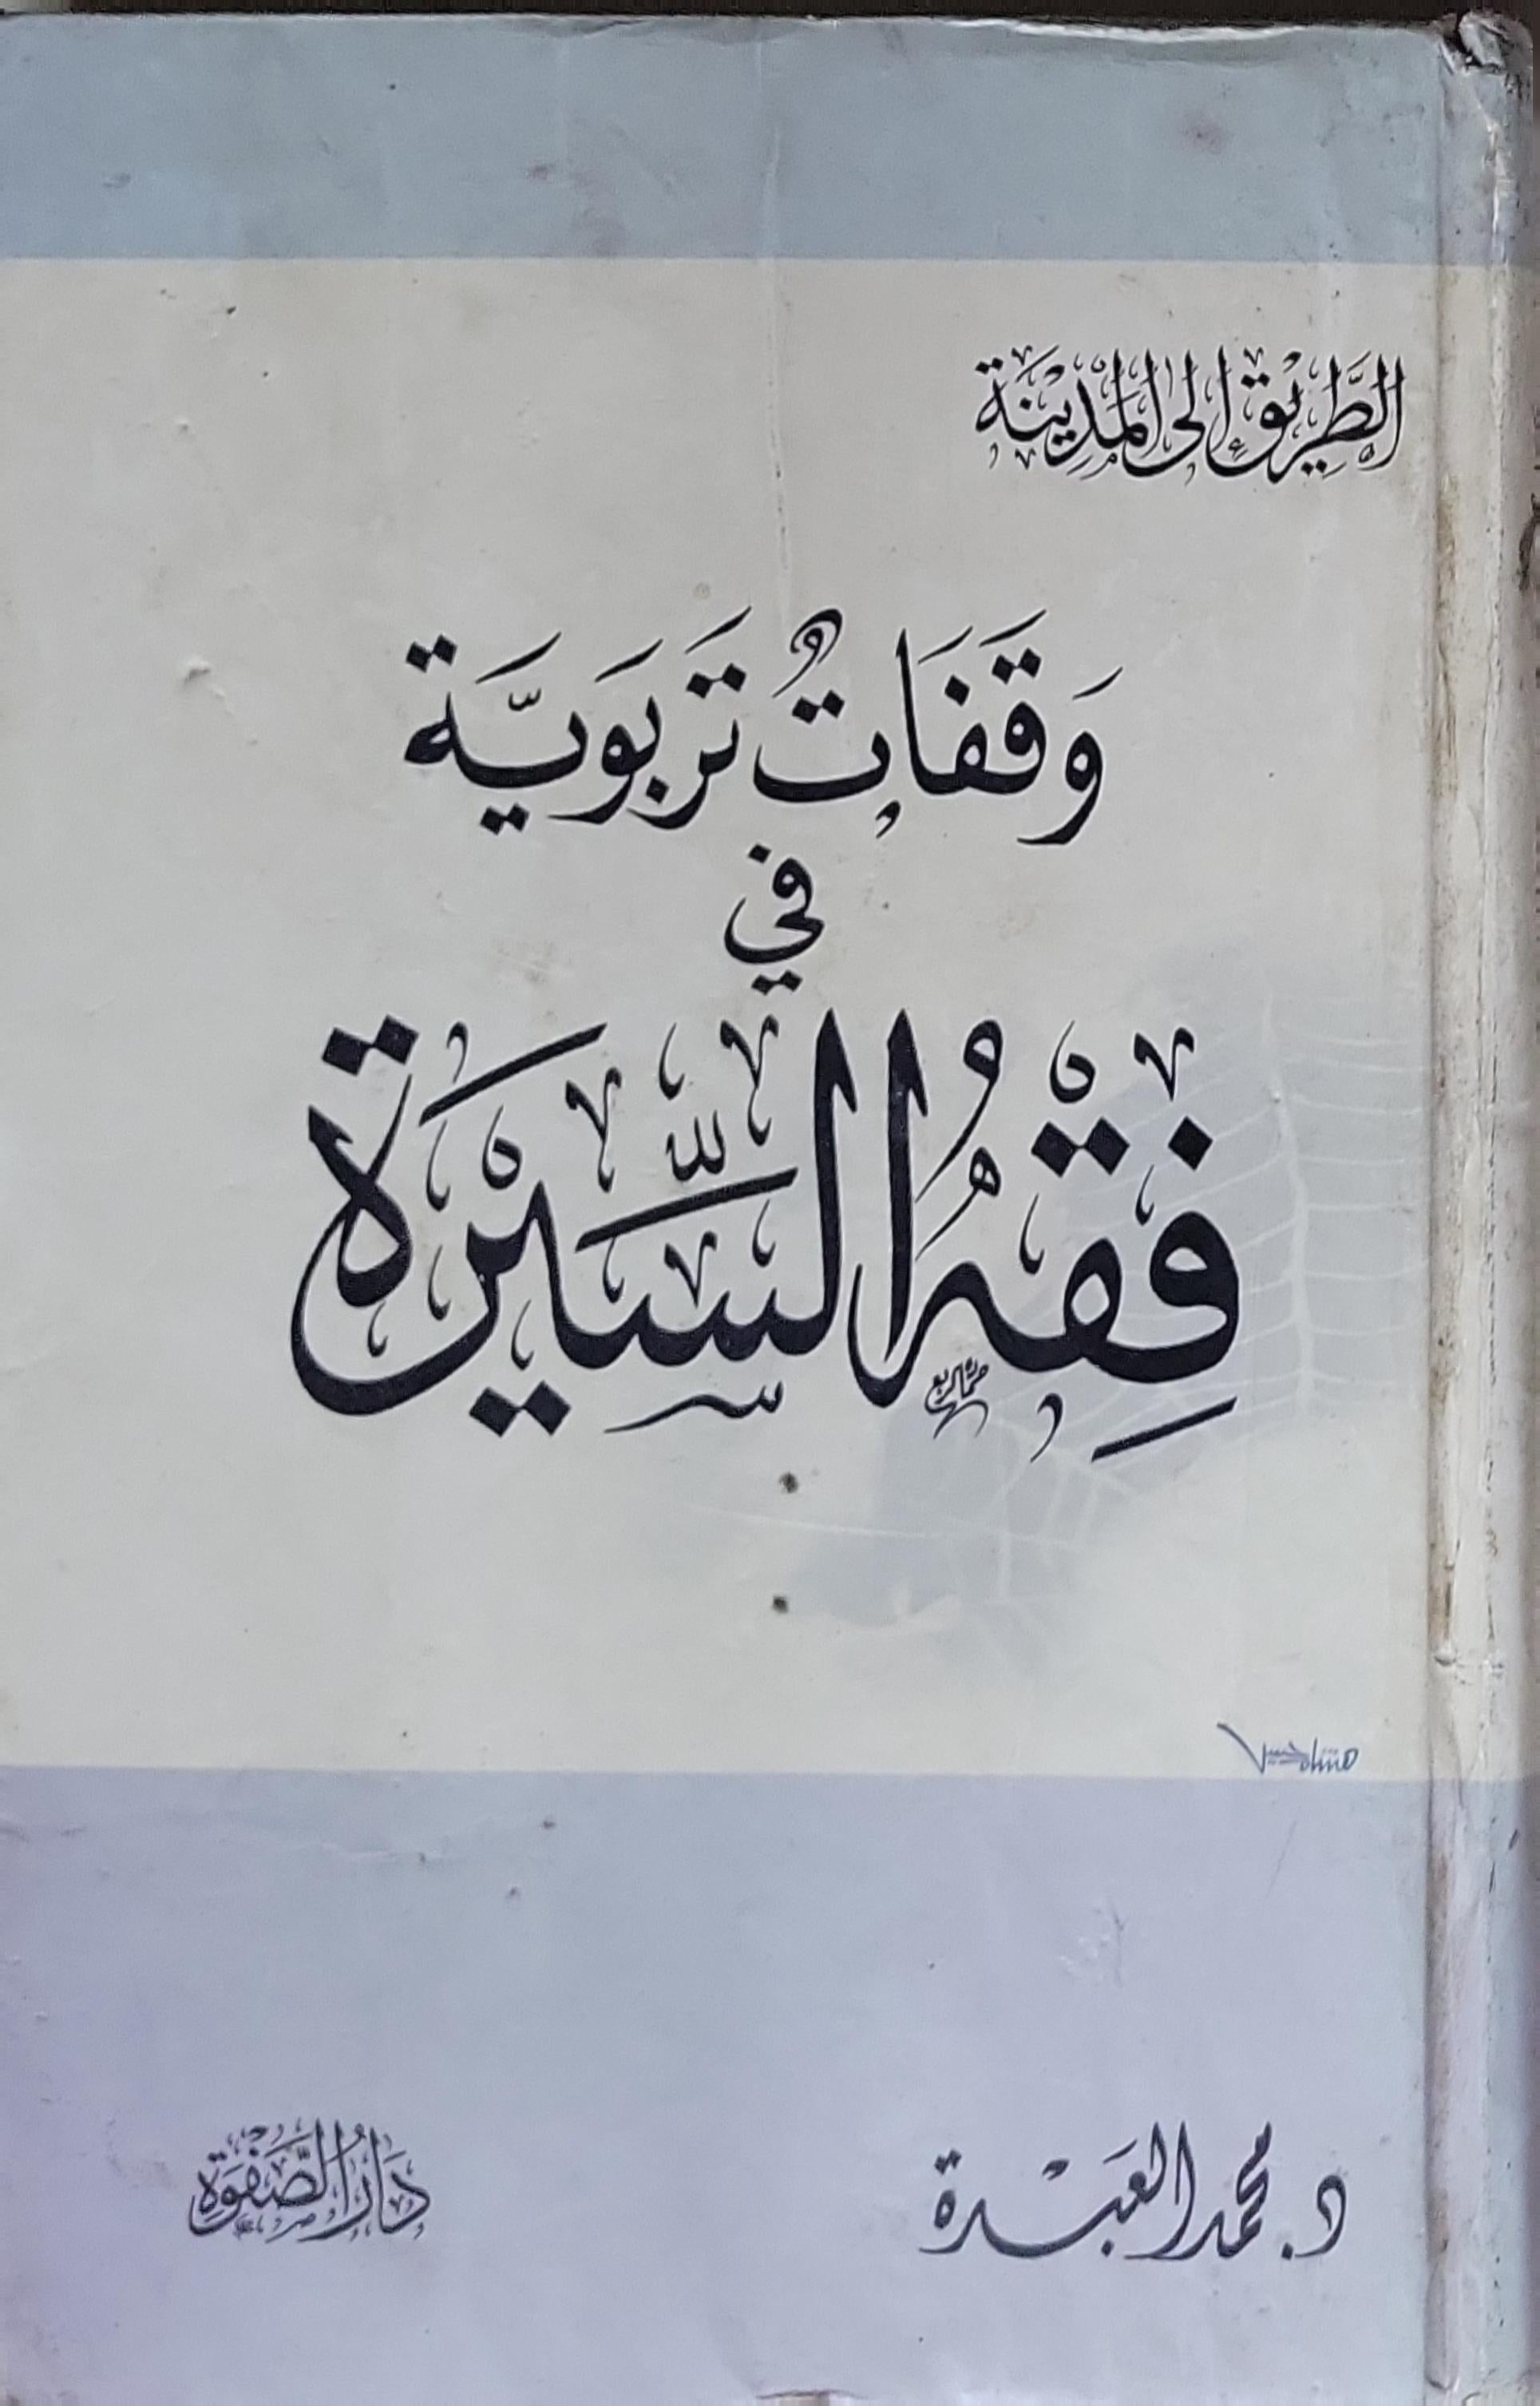 الطَّرِيْقُ إِلَى الْمَدِيْنَةِ
وَقَفَاتٌ تَرْبَوِيَّة
في
فِقْهُ السِّيْرَة
د. محمد العَبْدة
دَارُ الصَّفْوَةِ